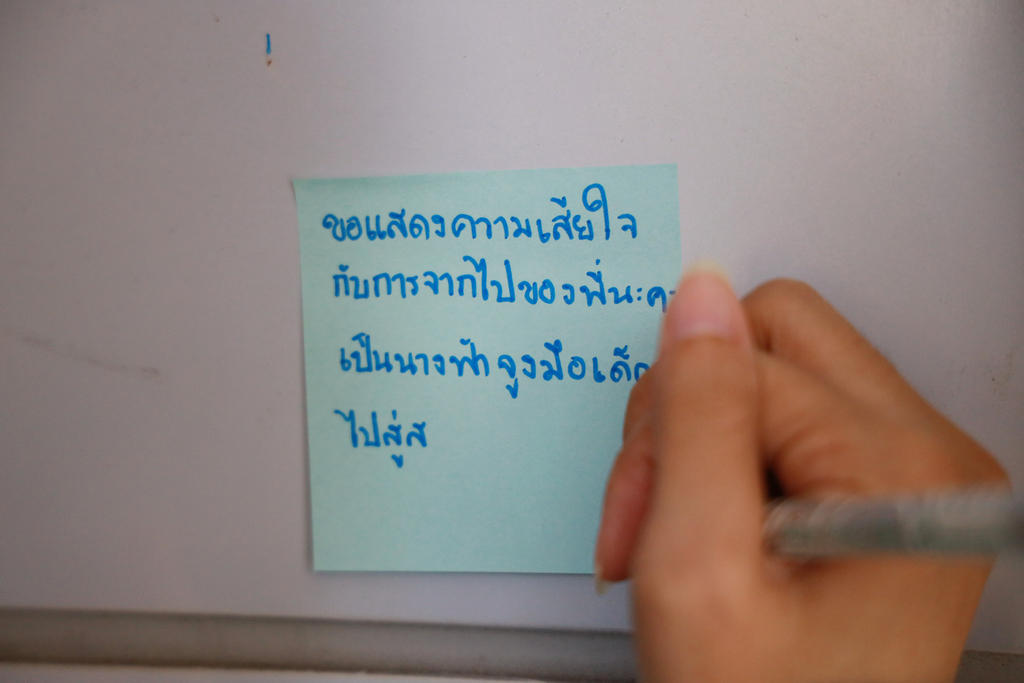 ขอแสดงความเสียใจ
กับการจากไปของพี่นะคะ
เป็นนางฟ้าจูงมือเด็ก
ไปสู่ส